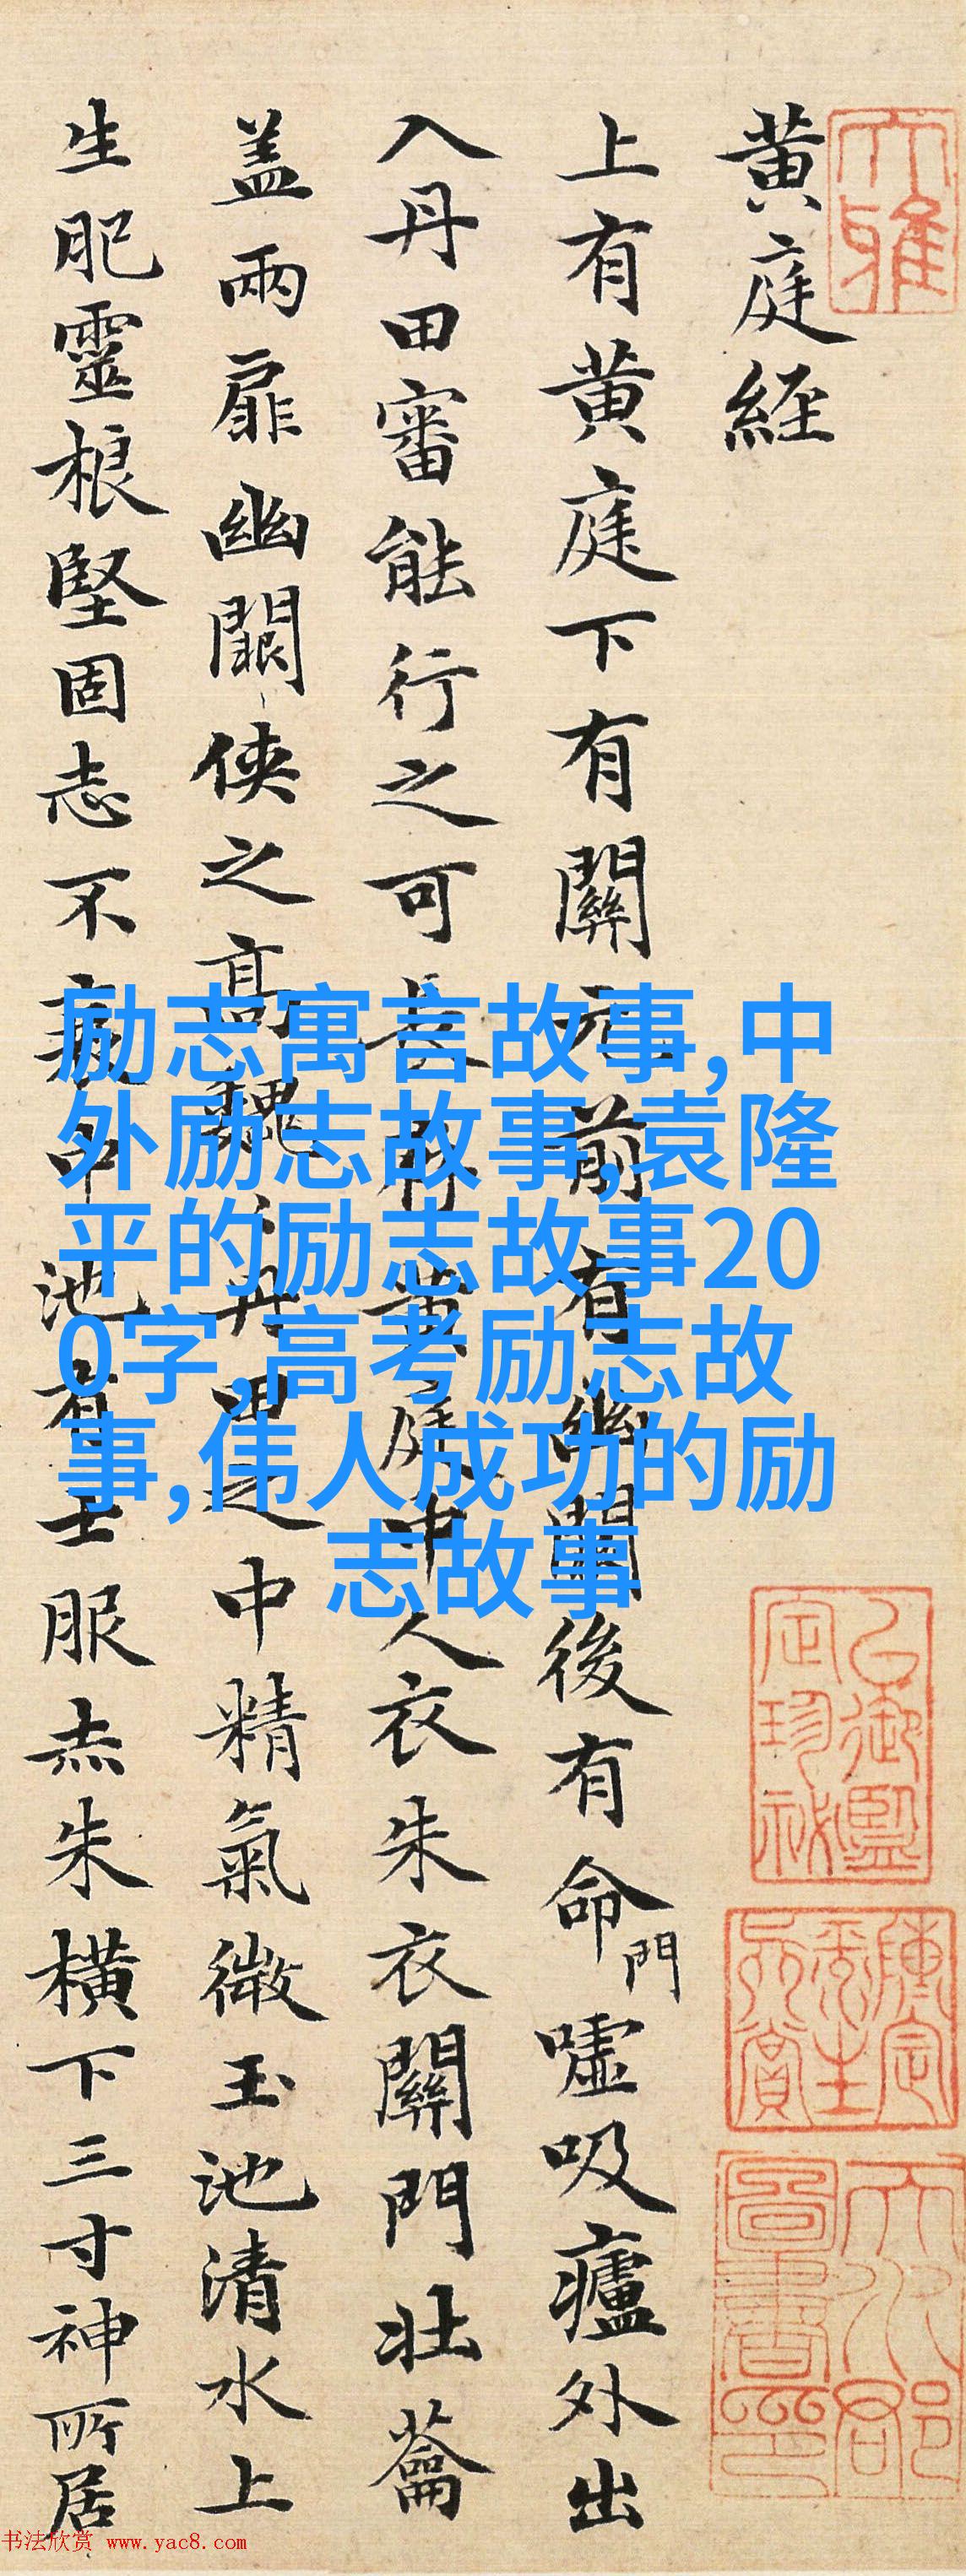 黄庭経
上有黄庭下有關元前有幽闕後有命門嘘吸廬外出
入丹田審能行之可長存黄庭中人衣朱衣關門壯蘥
盖兩扉幽闕侠之高巍丹田之中精氣微玉池清水上
生肥靈根堅固志不衰中池有士服赤朱横下三寸神所居
励志寓言故事,中
外励志故事,袁隆
平的励志故事20
0字,高考励志故
事,伟人成功的励
志故事
书法欣赏 www.yac8.com